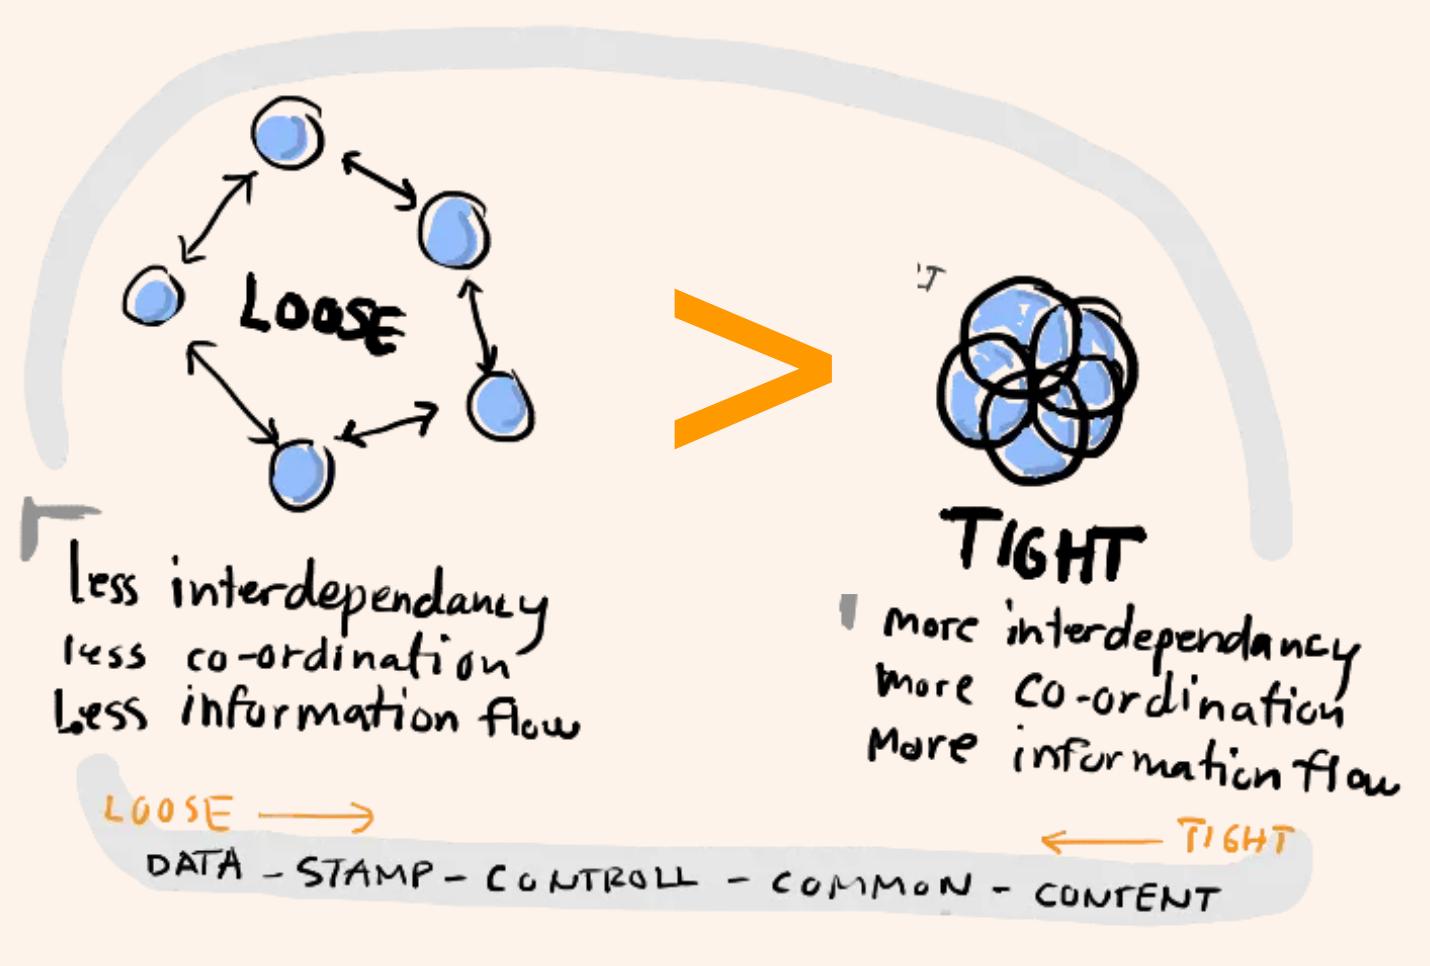 LOOSE
>
TIGHT
less interdependancy
less co-ordination
Less information flow
more interdependancy
more co-ordination
More information flow
LOOSE →
← TIGHT
DATA - STAMP - CONTROLL - COMMON - CONTENT